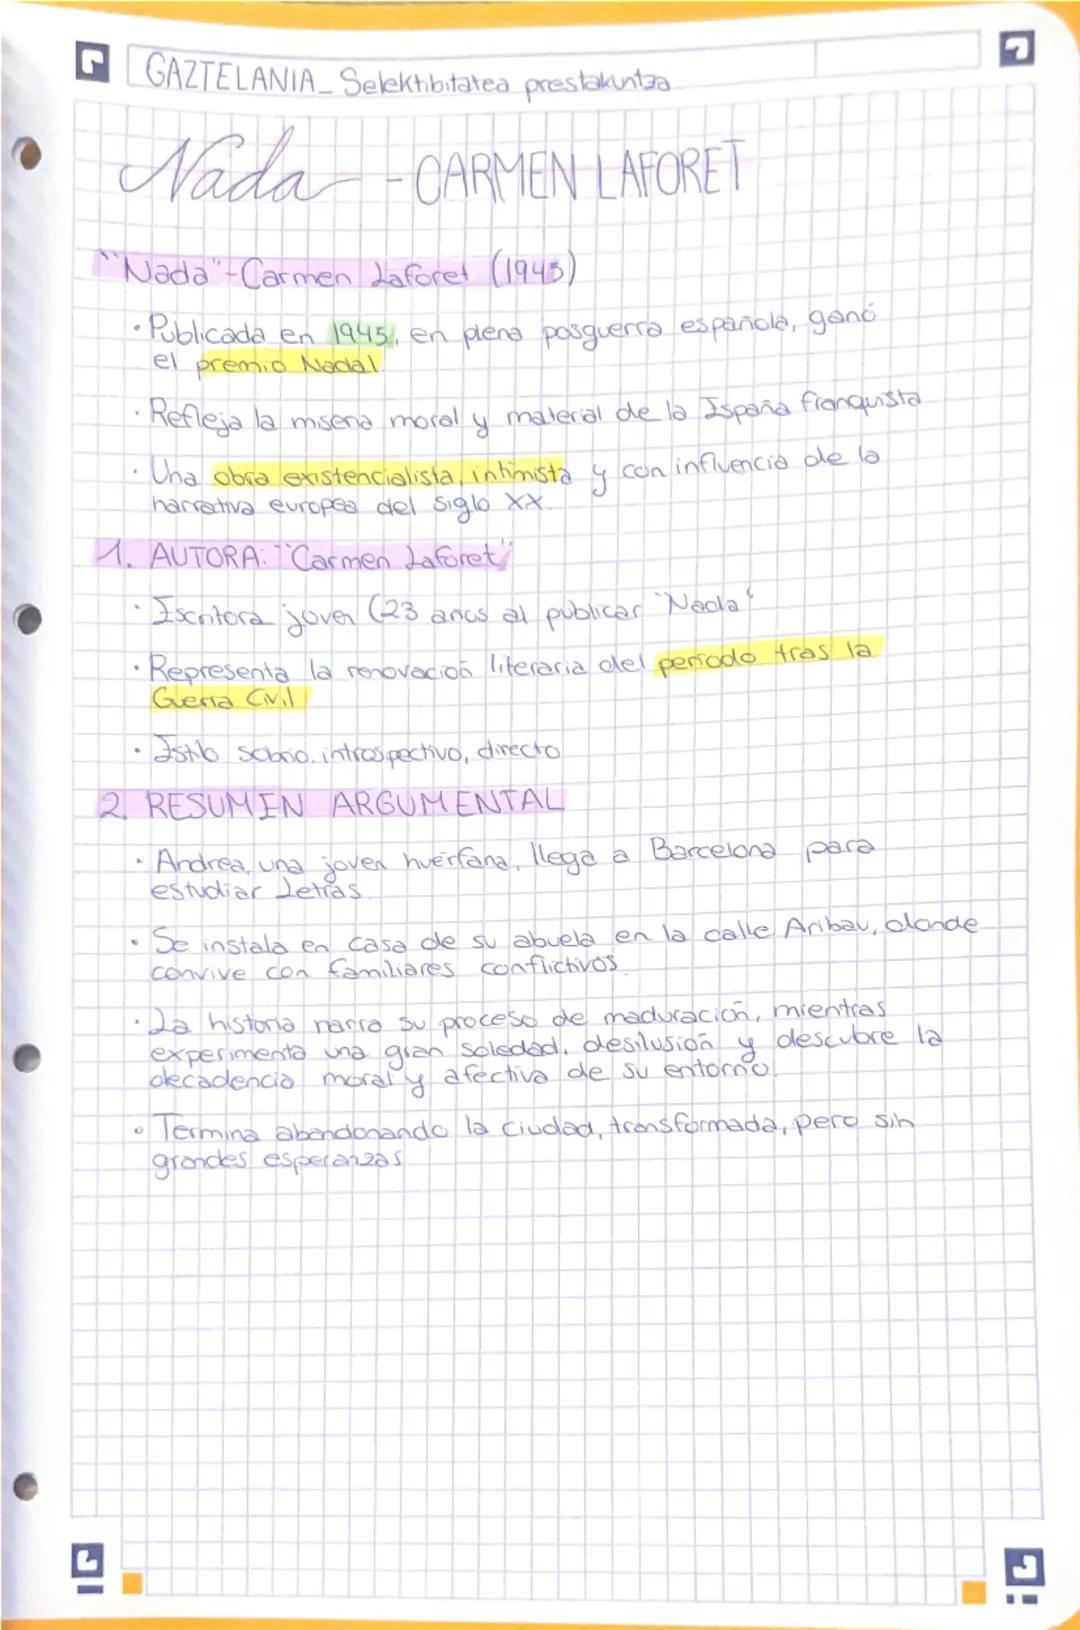 GAZTELANIA_ Selektibitatea prestakuntza
Nada - CARMEN LAFORET
"Nada" - Carmen Laforet (1945)
· Publicada en 1945, en plena posguerra española, ganó
el premio Nadal
· Refleja la miseria moral y material de la España franquista
· Una obra existencialista, intimista y con influencia de la
narrativa europea del siglo XX.
1. AUTORA: "Carmen Laforet"
· Escritora joven (23 años al publicar "Nada"
· Representa la renovación literaria del periodo tras la
Guerra Civil
· Estilo sobrio, introspectivo, directo
2. RESUMEN ARGUMENTAL
· Andrea, una joven huérfana, llega a Barcelona para
estudiar Letras.
· Se instala en casa de su abuela en la calle Aribau, donde
convive con familiares conflictivos.
· La historia narra su proceso de maduración, mientras
experimenta una gran soledad, desilusión y descubre la
decadencia moral y afectiva de su entorno.
· Termina abandonando la ciudad, transformada, pero sin
grandes esperanzas